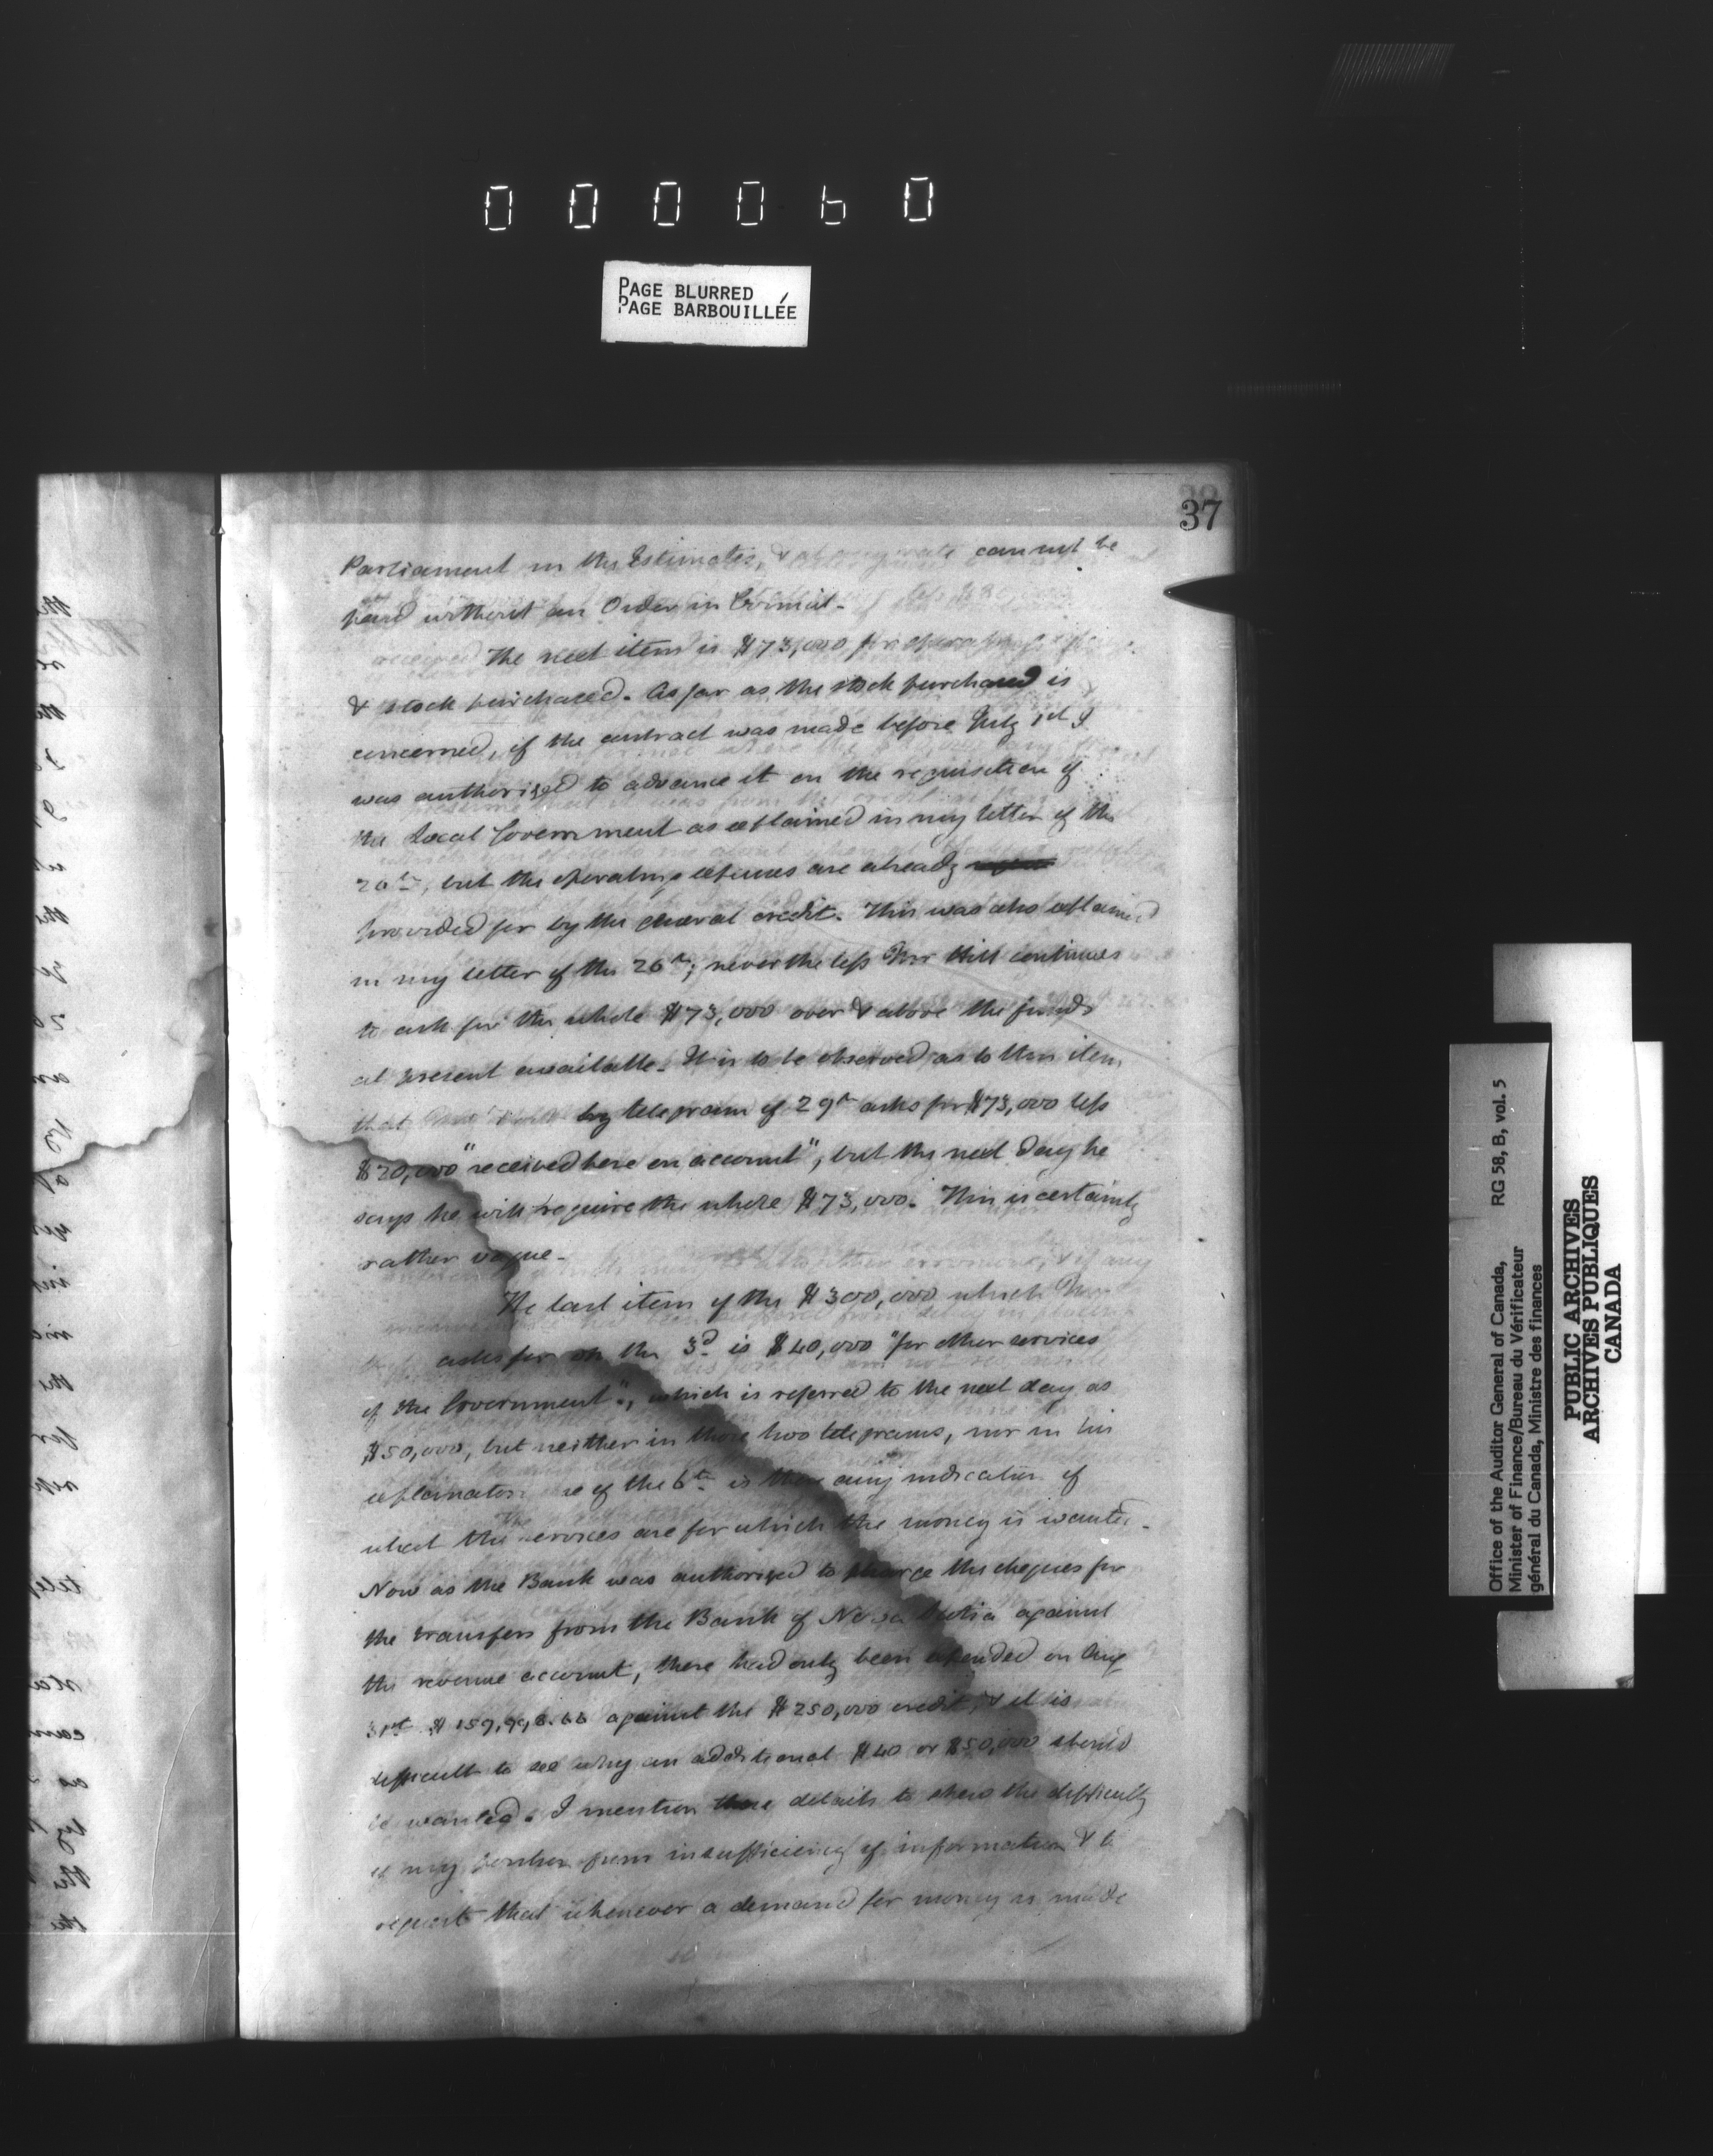 000060
PAGE BLURRED
PAGE BARBOUILLÉE
37
Parliament in the Estimates, & at any rate cannot be
paid without an Order in Council.
The next item is $73,000 for operating
& stock purchased. As far as the stock purchased is
concerned, if the contract was made before July 1st I
was authorised to advance it on the requisition of
the Local Government as explained in my letter of the
26th, but the operating expenses are already
provided for by the general credit. This was also explained
in my letter of the 26th; nevertheless Mr Hill continues
to ask for the whole $73,000 over & above the funds
at present available. It is to be observed as to this item
that by telegram of 29th asks for $73,000 less
$20,000 "received here on account", but the next day he
says he will require the whole $73,000. This is certainly
rather vague.
The last item of the $300,000 which Mr
asks for on the 3d is $40,000 "for other services
of the Government", which is referred to the next day as
$50,000, but neither in those two telegrams, nor in his
of the 6th is there any indication of
what the services are for which the money is wanted.
Now as the Bank was authorized to charge the cheques for
the transfers from the Bank of Nova Scotia against
the revenue account, there had only been expended on Aug
31st $159,998.66 against the $250,000 credit, & it is
difficult to see why an additional $40 or $50,000 should
be wanted. I mention these details to shew the difficulty
of my position from insufficiency of information & to
request that whenever a demand for money is made
Office of the Auditor General of Canada, RG 58, B, vol. 5
Minister of Finance/Bureau du Vérificateur
général du Canada, Ministre des finances
PUBLIC ARCHIVES
ARCHIVES PUBLIQUES
CANADA